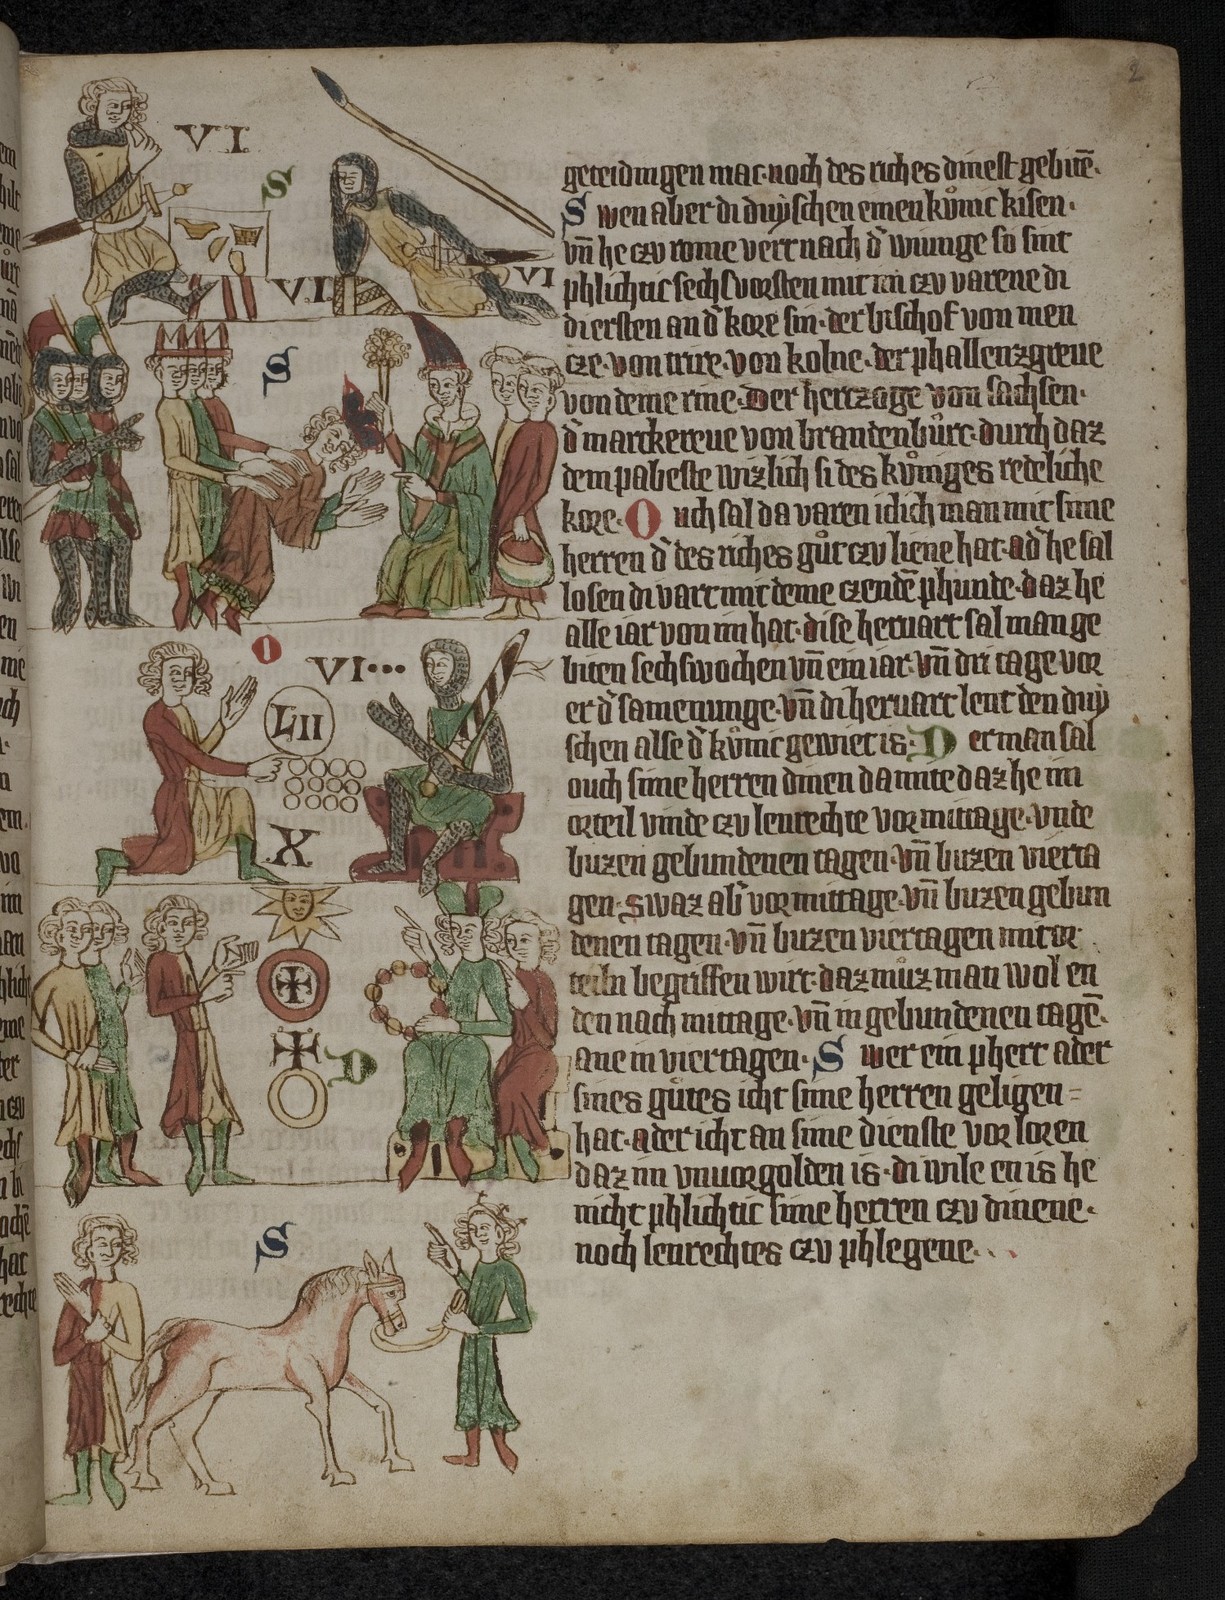 2
VI
S
VI
VI
S
O
VI
LII
X
D
S
geteidingen mac· noch des riches dinest gebitē·
Swen aber di duÿschen einen kůnic kisen·
vn̄ he czu rome vert nach d' wiunge so sint
phlichtic sechs vorsten mit im czu varene di
di ersten an d' kore sin· der bischof von men
cze· von trire· von kolne· der phallenzgreue
von deme rine· Der hertzoge von sachsen·
d' marckereue von brandenbůrc· durch daz
dem pabeste wizlich si des kůniges redeliche
kore· Ouch sal da varen iclich man mit sime
herren d' des riches gůt czu liene hat· ad' he sal
losen di vart mit deme czendē phunde· daz he
alle iar von im hat· dise heruart sal man ge
biten sechs wochen vn̄ ein iar· vn̄ dri tage vor
er d' samenunge· vn̄ di heruart lent den duÿ
schen alse d' kůnic gewiet is· Der man sal
ouch sime herren dinen da mite daz he im
orteil vinde czu lenrechte vor mittage· vnde
buzen gebundenen tagen· vn̄ buzen vierta
gen· Swaz ab' vor mittage· vn̄ buzen gebun
denen tagen· vn̄ buzen viertagen mit or
teiln begriffen wirt· daz můz man wol en
den nach mittage· vn̄ in gebundenen tagē·
ane in viertagen· Swer ein phert ader
sines gůtes icht sime herren geligen
hat· ader icht an sime dienste vorloren
daz im vnuorgolden is· di wile en is he
nicht phlichtic sime herren czu dinene·
noch lenrechtes czu phlegene·